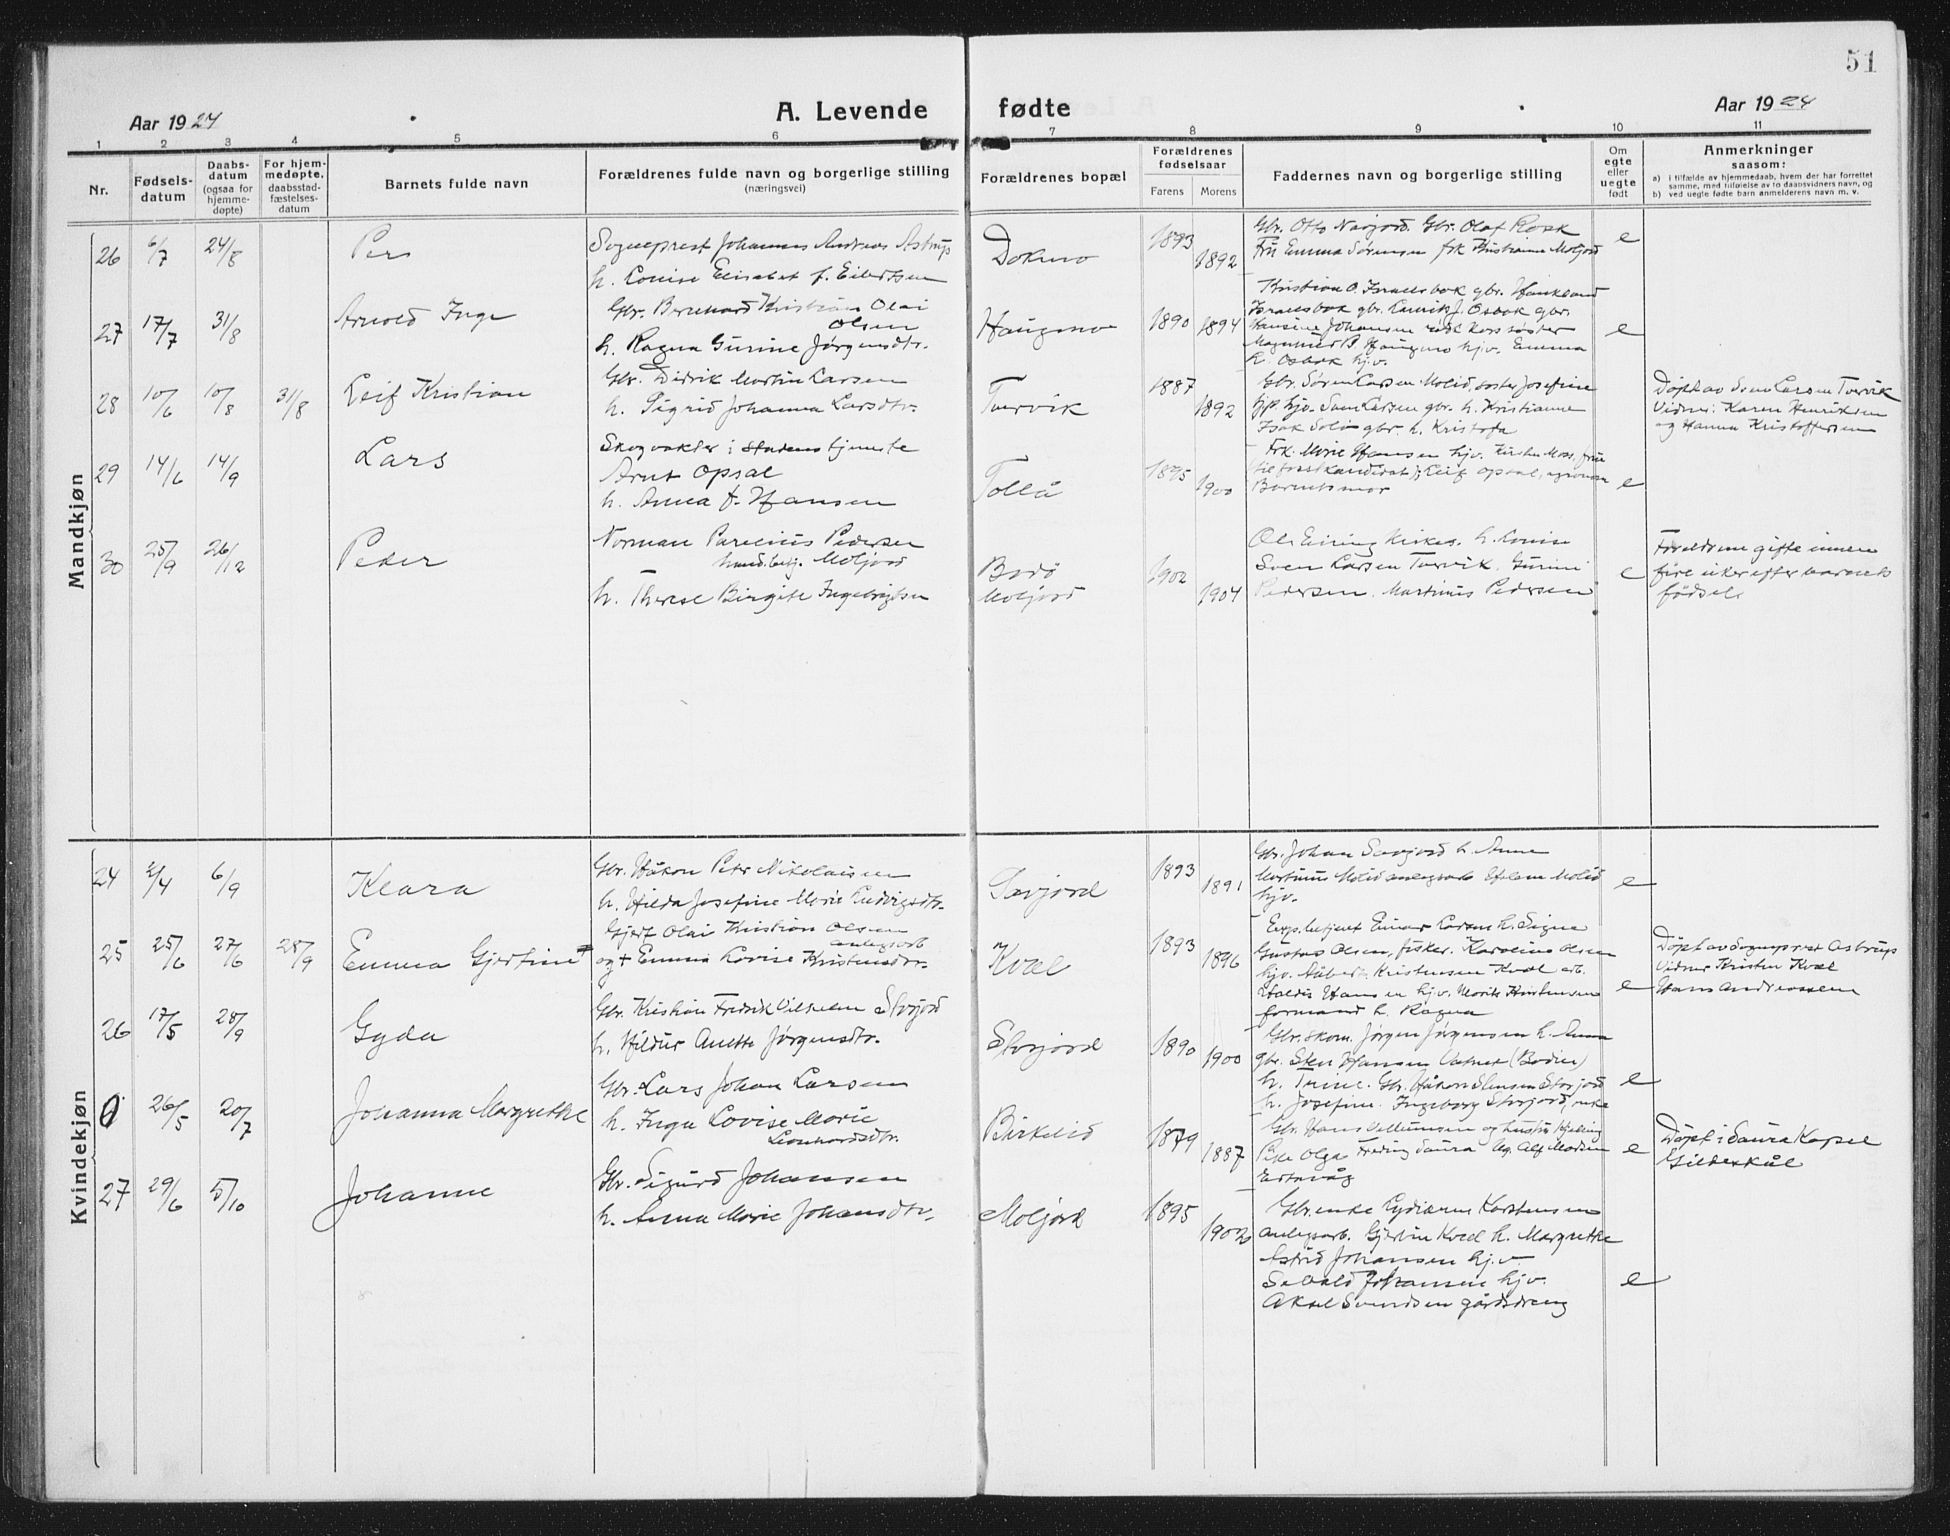 51
Aar 1924
A. Levende fødte
Aar 1924
1 2 3 4 5 6 7 8 9 10 11
Nr.
Fødselsdatum
Daabsdatum (ogsaa for hjemmedøpte)
For hjemmedøpte, daabsstadfæstelsesdatum
Barnets fulde navn
Forældrenes fulde navn og borgerlige stilling
(næringsvei)
Forældrenes bopæl
Forældrenes fødselsaar
Farens
Morens
Faddernes navn og borgerlige stilling
Om egte eller uegte født
Anmerkninger
saasom:
a) i tilfælde av hjemmedaab, hvem der har forrettet
samme, med tilføielse av to daabsvidners navn, og
b) ved uegte fødte barn anmelderens navn m. v.
Mandkjøn
26 6/7 24/8 Per
Sogneprest Johannes Andreas Astrup
h. Louise Elisabet f. Eilertsen
Dokmo 1893 1892
Gbr. Otto Navjord. Gbr. Olaf Rosk
Fru Emma Sørensen frk Kristianne Moljord
e
27 17/7 31/8 Arnold Inge
Gbr. Bernhard Kristian Olai
Olsen
h. Ragna Gurine Jørgensdtr.
Haugmo 1890 1894
Kristian O. Israelsbok gbr. Haukland
Israelsbok gbr. Lauritz J. Osbok gbr.
Hansine Johansen røde kors søster
Magnhild B. Haugmo hjv. Emma
K. Osbok hjv.
e
28 10/6 10/8 31/8 Leif Kristian
Gbr. Didrik Martin Larsen
h. Sigrid Johanna Larsdtr.
Tuervik 1887 1892
Gbr. Søren Larsen Molid, søster Josefine
hjv. Sven Larsen gbr. h. Kristianne
Isak Solli gbr. h. Kristofa
Døpt av Sven Larsen Tuervik
Vidner: Karen Henriksen
og Hanna Kristoffersen
29 14/6 14/9 Lars
Skogvakter i statens tjeneste
Arnt Opsal
h. Anna f. Hansen
Tollå 1895 1900
Frk. Marie Hansen hjv. Kirsten Moss, frue
Leif Opsal, agronom
Barnets mor
e
30 25/9 26/12 Peder
Norman Parelius Pedersen
handl.betj. Moljord
h. Therese Birgite Ingebrigtsen
Bodø
Moljord 1902 1904
Ole Eiring Kirkes. h. Louise
Sven Larsen Tuervik. Gurine
Pedersen. Martinus Pedersen
e
Forældrene gifte innen
fire uker efter barnets
fødsel.
Kvindekjøn
24 2/4 6/9 Klara
Gbr. Håkon Peter Nikolaisen
h. Hilda Josefine Marie Ludvigsdtr.
Savjord 1893 1891
Gbr. Johan Savjord h. Anne
Martinus Molid anlegsarb. Molid
hjv.
e
25 25/6 27/6 28/9 Emma Gjertine
Gjert Olai Kristian Olsen
anlegsarb
og + Emma Lovise Kristensdtr.
Kvæl 1893 1896
Exp.betjent Einar Larsen h. Signe
Gustav Olsen, fisker. Karoline Olsen
hjv. Albert Kristensen Kvæl arb.
Haldis Hansen hjv. Morits Kristensen
formand h. Ragna
e
Døpt av Sogneprest Astrup
Vidner Kristen Kvæl
Hans Andreassen
26 17/5 28/9 Gyda
Gbr. Kristian Fredrik Vilhelm Storjord
h. Hildur Anette Jørgensdtr.
Storjord 1890 1900
Gbr. skom. Jørgen Jørgensen h. Anna
gbr. Sten Hansen Vatnet (Bodin)
h. Trine. Gbr. Håkon Stensen Storjord
h. Josefine. Ingeborg Storjord, enke
e
0 26/5 20/7 Johanna Margrethe
Gbr. Lars Johan Larsen
h. Inga Lovise Marie
Leonhardsdtr.
Birkelid 1879 1887
Gbr. Hans og hustru
Olga Saura Alf
e
Døpt i Saura Kapel
Gildeskål
27 29/6 5/10 Johanne
Gbr. Sigurd Johansen
h. Anna Marie Johansdtr.
Moljord 1895 1902
Gbr.enke Karstensen
anlegsarb. Gjertin Kvæl h. Margrethe
Astrid Johansen hj.v.
Sevald Johansen hjv.
Aksel Svendsen gårdsdreng
e